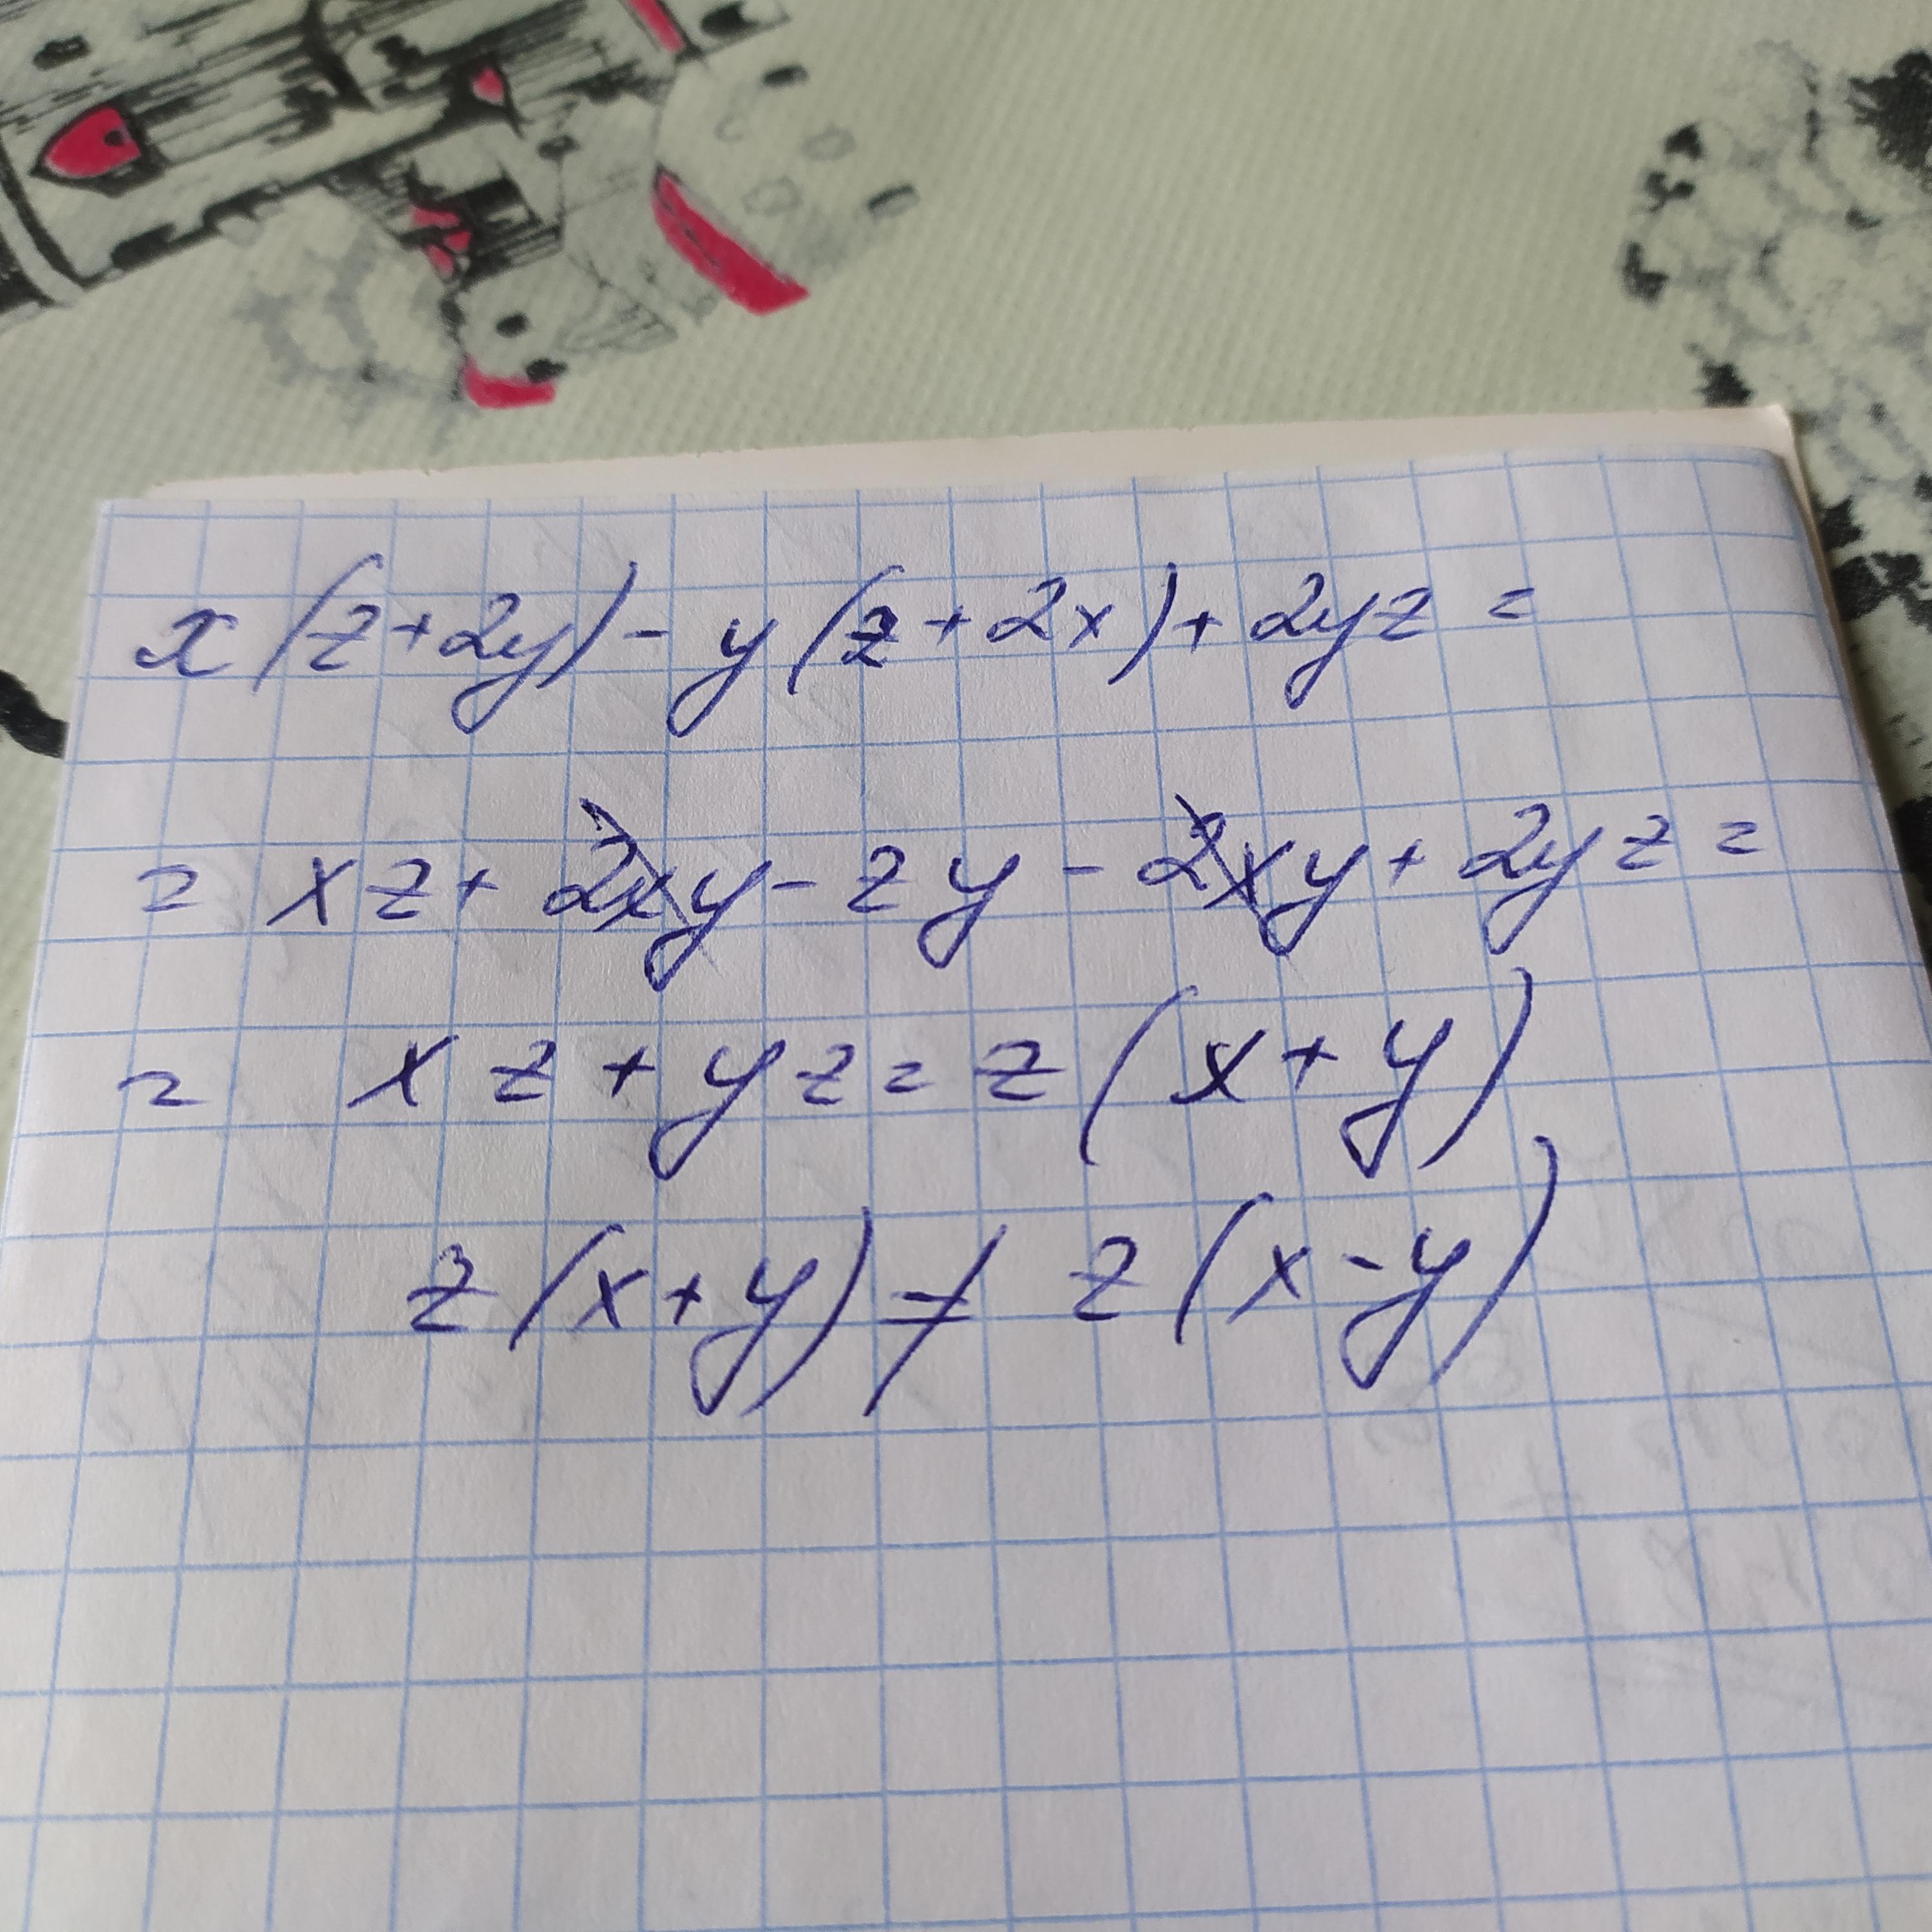 x(z+2y)-y(z+2x)+2yz=
=xz+2xy-zy-2xy+2yz=
=xz+yz=z(x+y)
z(x+y)≠z(x-y)